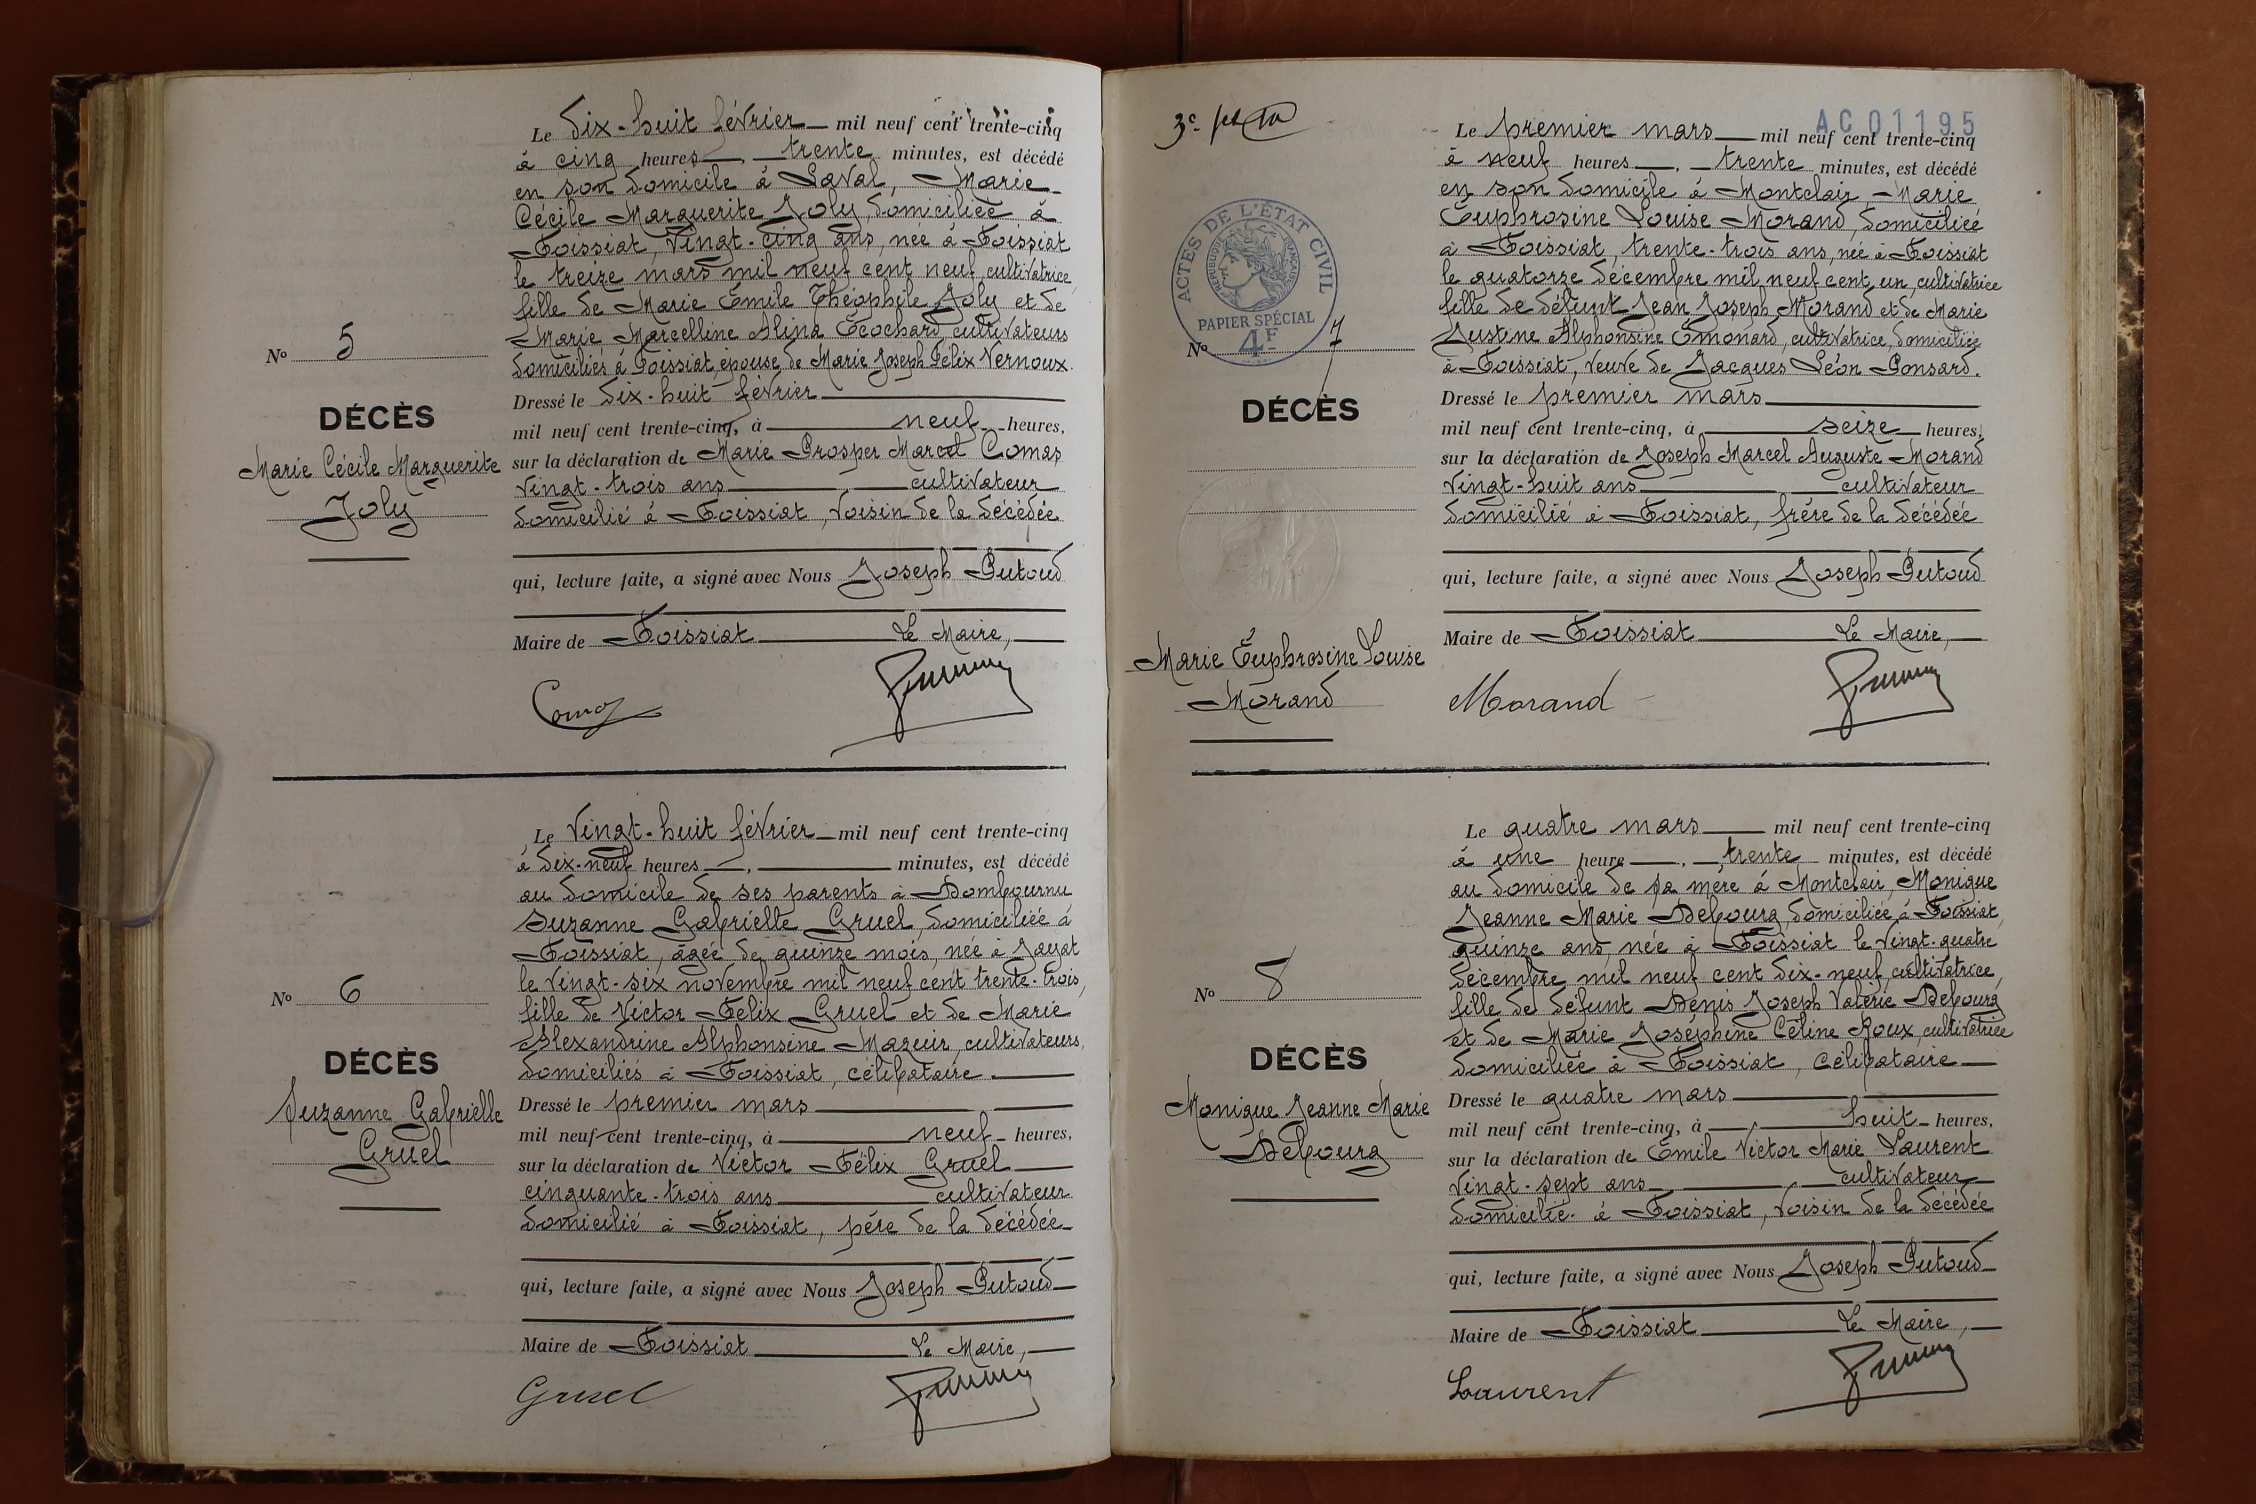 Le dix-huit février mil neuf cent trente-cinq
à cinq heures, trente minutes, est décédé
en son domicile à Laval, Marie
Cécile Marguerite Joly, domiciliée à
Foissiat, vingt-cinq ans, née à Foissiat
le treize mars mil neuf cent neuf, cultivatrice,
fille de Marie Emile Théophile Joly et de
Marie Marcelline Alina Ecochard, cultivateurs
domiciliés à Foissiat, épouse de Marie Joseph Félix Vernoux.
No 5
DÉCÈS
Marie Cécile Marguerite
Joly
Dressé le dix-huit février
mil neuf cent trente-cinq, à neuf heures,
sur la déclaration de Marie Prosper Marcel Comas
vingt-trois ans, cultivateur
domicilié à Foissiat, voisin de la décédée
qui, lecture faite, a signé avec Nous Joseph Putoud
Maire de Foissiat Le Maire,
Comas
Le vingt-huit février mil neuf cent trente-cinq
à dix-neuf heures, minutes, est décédé
au domicile de ses parents à Dombournu
Suzanne Gabrielle Gruel, domiciliée à
Foissiat, âgée de quinze mois, née à Jayat
le vingt-six novembre mil neuf cent trente-trois,
fille de Victor Félix Gruel et de Marie
Alexandrine Alphonsine Mazuir, cultivateurs,
domiciliés à Foissiat, célibataire.
No 6
DÉCÈS
Suzanne Gabrielle
Gruel
Dressé le premier mars
mil neuf cent trente-cinq, à neuf heures,
sur la déclaration de Victor Félix Gruel
cinquante-trois ans cultivateur
domicilié à Foissiat, père de la décédée
qui, lecture faite, a signé avec Nous Joseph Putoud
Maire de Foissiat Le Maire,
Gruel
3e
AC01195
Le premier mars mil neuf cent trente-cinq
à neuf heures, trente minutes, est décédé
en son domicile à Montclair, Marie
Euphrosine Louise Morand, domiciliée
à Foissiat, trente-trois ans, née à Foissiat
le quatorze décembre mil neuf cent un, cultivatrice
fille de défunt Jean Joseph Morand et de Marie
Justine Alphonsine Emonard, cultivatrice, domiciliée
à Foissiat, veuve de Jacques Léon Ponsard.
ACTES DE L'ÉTAT CIVIL
RÉPUBLIQUE FRANÇAISE
PAPIER SPÉCIAL
4F
No 7
DÉCÈS
Marie Euphrosine Louise
Morand
Dressé le premier mars
mil neuf cent trente-cinq, à seize heures,
sur la déclaration de Joseph Marcel Auguste Morand
vingt-huit ans, cultivateur
domicilié à Foissiat, frère de la décédée
qui, lecture faite, a signé avec Nous Joseph Putoud
Maire de Foissiat Le Maire,
Morand
Le quatre mars mil neuf cent trente-cinq
à une heure, trente minutes, est décédé
au domicile de sa mère à Montclair, Monique
Jeanne Marie Debourg, domiciliée à Foissiat,
quinze ans, née à Foissiat le vingt-quatre
décembre mil neuf cent dix-neuf, cultivatrice,
fille de défunt Denis Joseph Valérie Debourg
et de Marie Joséphine Céline Roux, cultivatrice
domiciliée à Foissiat, célibataire
No 8
DÉCÈS
Monique Jeanne Marie
Debourg
Dressé le quatre mars
mil neuf cent trente-cinq, à huit heures,
sur la déclaration de Emile Victor Marie Laurent
vingt-sept ans, cultivateur
domicilié à Foissiat, voisin de la décédée
qui, lecture faite, a signé avec Nous Joseph Putoud
Maire de Foissiat Le Maire,
Laurent